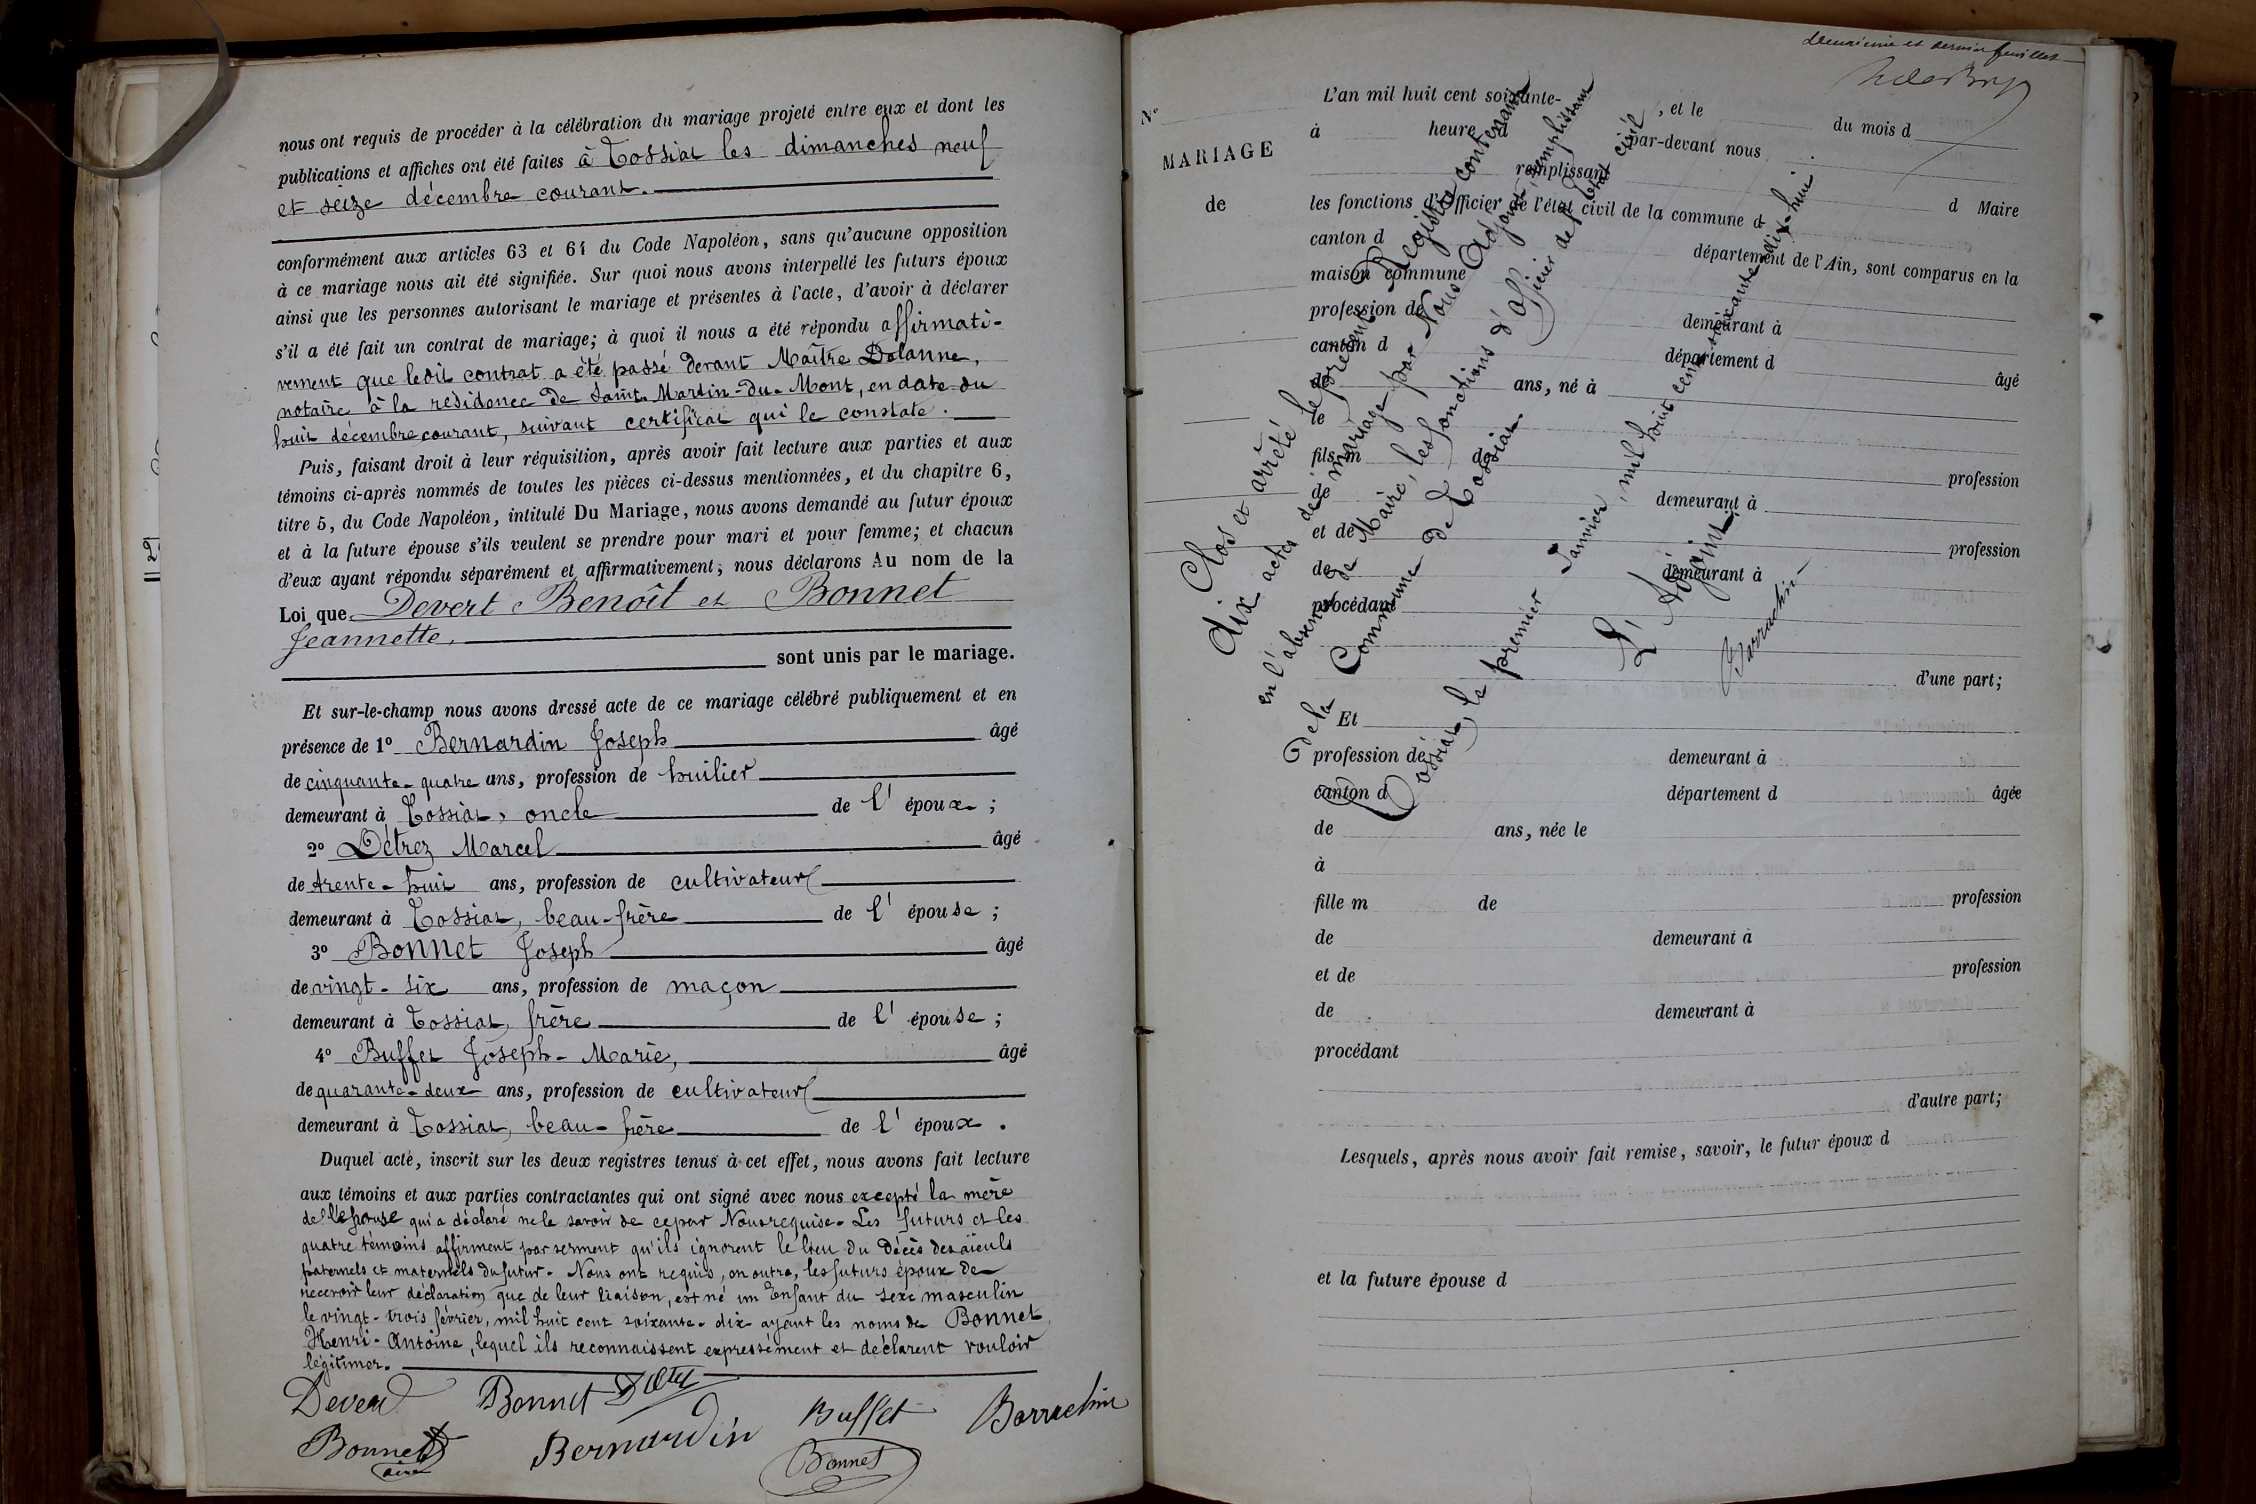 nous ont requis de procéder à la célébration du mariage projeté entre eux et dont les
publications et affiches ont été faites à Tossiat les dimanches neuf
et seize décembre courant.
conformément aux articles 63 et 64 du Code Napoléon, sans qu'aucune opposition
à ce mariage nous ait été signifiée. Sur quoi nous avons interpellé les futurs époux
ainsi que les personnes autorisant le mariage et présentes à l'acte, d'avoir à déclarer
s'il a été fait un contrat de mariage; à quoi il nous a été répondu affirmati-
vement que ledit contrat a été passé devant Maître Dolanne,
notaire à la résidence de Saint-Martin-du-Mont, en date du
huit décembre courant, suivant certificat qui le constate.
Puis, faisant droit à leur réquisition, après avoir fait lecture aux parties et aux
témoins ci-après nommés de toutes les pièces ci-dessus mentionnées, et du chapitre 6,
titre 5, du Code Napoléon, intitulé Du Mariage, nous avons demandé au futur époux
et à la future épouse s'ils veulent se prendre pour mari et pour femme; et chacun
d'eux ayant répondu séparément et affirmativement, nous déclarons Au nom de la
Loi que Devert Benoît et Bonnet
Jeannette,
sont unis par le mariage.
Et sur-le-champ nous avons dressé acte de ce mariage célébré publiquement et en
présence de 1º Bernardin Joseph âgé
de cinquante-quatre ans, profession de huilier
demeurant à Tossiat, oncle de l'époux ;
2º Détrez Marcel âgé
de trente-huit ans, profession de cultivateur
demeurant à Tossiat, beau-frère de l'épouse ;
3º Bonnet Joseph âgé
de vingt-six ans, profession de maçon
demeurant à Tossiat, frère de l'épouse ;
4º Buffet Joseph-Marie, âgé
de quarante-deux ans, profession de cultivateur
demeurant à Tossiat, beau-frère de l'époux.
Duquel acte, inscrit sur les deux registres tenus à cet effet, nous avons fait lecture
aux témoins et aux parties contractantes qui ont signé avec nous excepté la mère
de l'épouse qui a déclaré ne le savoir de ce par Nous requise. Les futurs et les
quatre témoins affirment par serment qu'ils ignorent le lieu du décès des aïeuls
paternels et maternels du futur. Nous ont requis, en outre, les futurs époux de
recevoir leur déclaration que de leur liaison, est né un Enfant du sexe masculin
le vingt-trois février, mil huit cent soixante-dix ayant les noms de Bonnet
Henri-Antoine, lequel ils reconnaissent expressément et déclarent vouloir
légitimer.
Devert Bonnet Buffet Barrachin
Bonnet Bernardin Bonnet
ainé
Deuxième et dernier feuillet
Nº
MARIAGE
de
L'an mil huit cent soixante- , et le du mois d
à heure d par-devant nous
remplissant
les fonctions d'officier de l'état civil de la commune d d Maire
canton d département de l'Ain, sont comparus en la
maison commune
profession de demeurant à
canton d département d âgé
de ans, né à
le
fils m de
de demeurant à profession
et de
de demeurant à profession
procédant
d'une part;
Et
profession de demeurant à
canton d département d âgée
de ans, née le
à
fille m de profession
de demeurant à
et de profession
de demeurant à
procédant
d'autre part;
Lesquels, après nous avoir fait remise, savoir, le futur époux d
et la future épouse d
Clos et arrêté le présent Registre contenant
dix actes de mariage par Nous Adjoint, remplissant
en l'absence de Maire, les fonctions d'officier de l'état civil
de la Commune de Tossiat.
Tossiat, le premier Janvier, mil huit cent soixante-dix-huit
L'Adjoint,
Barrachin